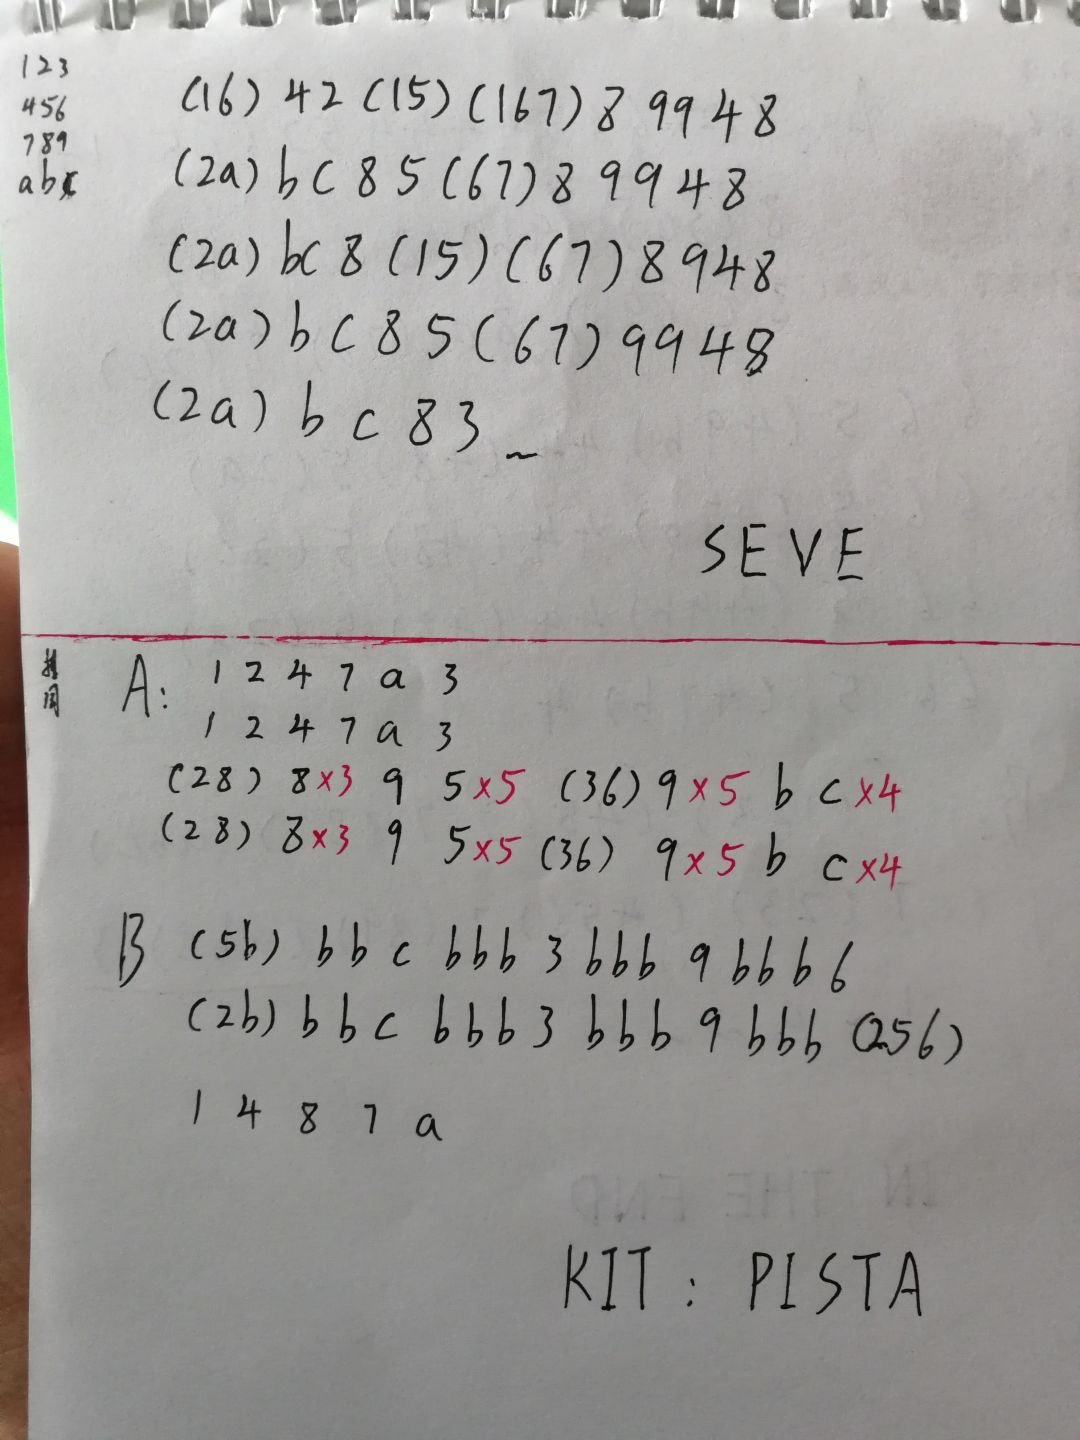 123
456
789
abc
(16) 42 (15) (167) 8 99 48
(2a) b c 8 5 (67) 8 9 9 4 8
(2a) bc 8 (15) (67) 8 9 4 8
(2a) b c 8 5 (67) 9 9 4 8
(2a) b c 8 3 ~
SEVE
A: 1 2 4 7 a 3
1 2 4 7 a 3
(28) 8×3 9 5×5 (36) 9×5 b c×4
(28) 8×3 9 5×5 (36) 9×5 b c×4
B (5b) b b c bbb 3 bbb 9 bbb 6
(2b) b b c bbb 3 bbb 9 bbb (256)
1 4 8 7 a
KIT: PISTA